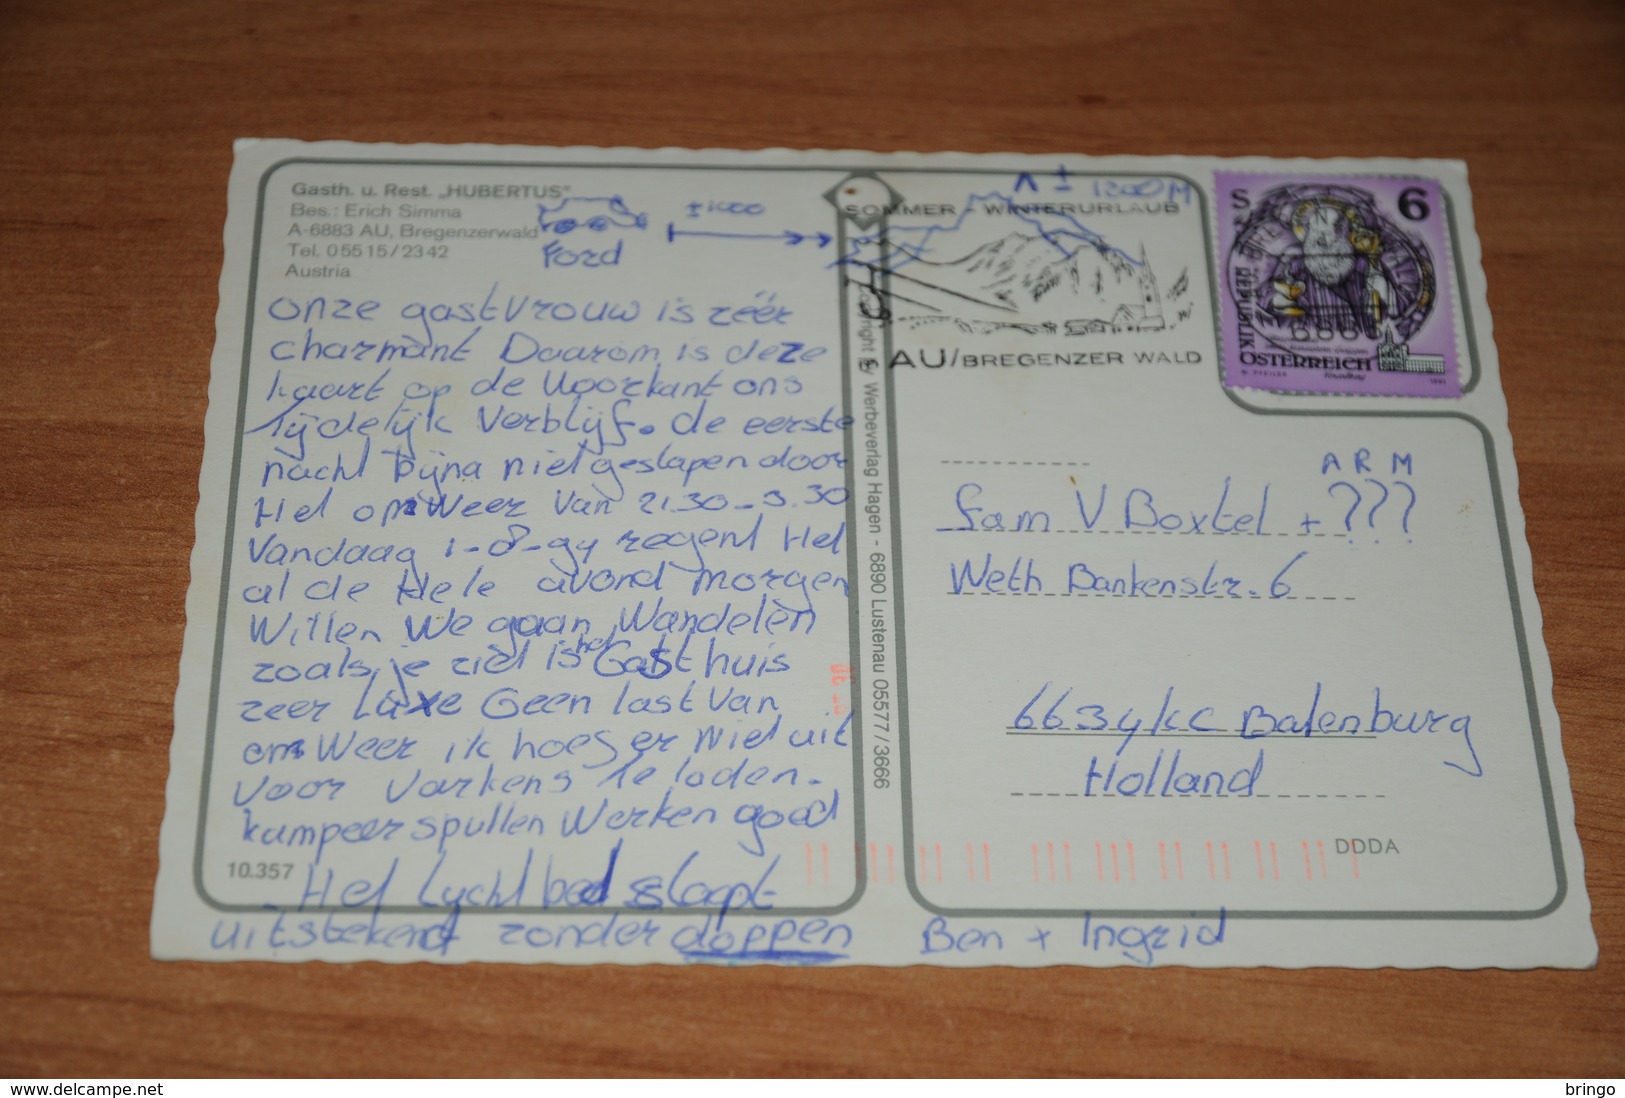 Gasth. u. Rest. „HUBERTUS"
Bes.: Erich Simma
A-6883 AU, Bregenzerwald
Tel. 05515/2342
Austria
Ford
± 1000
± 1200 M
SOMMER - WINTERURLAUB
AU/BREGENZER WALD
S 6
REPUBLIK
ÖSTERREICH
onze gastvrouw is zéér
charmant Daarom is deze
kaart op de Voorkant ons
Tijdelijk Verblijf. de eerste
nacht bijna niet geslapen door
Het onWeer Van 21.30 - 3.30
Vandaag 1-8-94 regent Het
al de Hele avond morgen
Willen We gaan Wandelen
zoals je ziet is het Gasthuis
zeer Luxe Geen last Van
onWeer ik hoef er Niet uit
Voor Varkens Te laden.
kampeer spullen Werken goed
10.357
- Het Lucht bed slaapt
uitstekend zonder doppen
Ben + Ingrid
Copyright by Werbeverlag Hagen - 6890 Lustenau 05577/3666
A R M
fam V Boxtel + ???
Weth Bankenstr. 6
6634 KC Batenburg
Holland
DDDA
delcampe.net
bringo